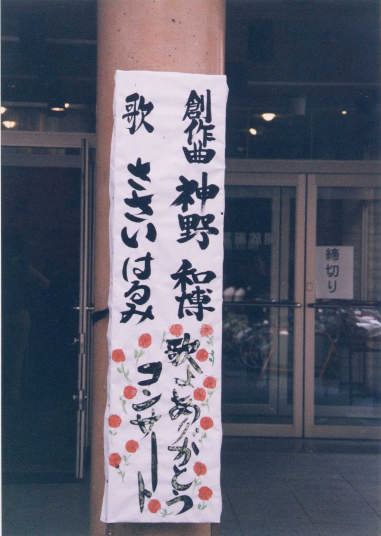 創作曲 神野 和博
歌 ささいはるみ
歌よありがとう
コンサート
締切り